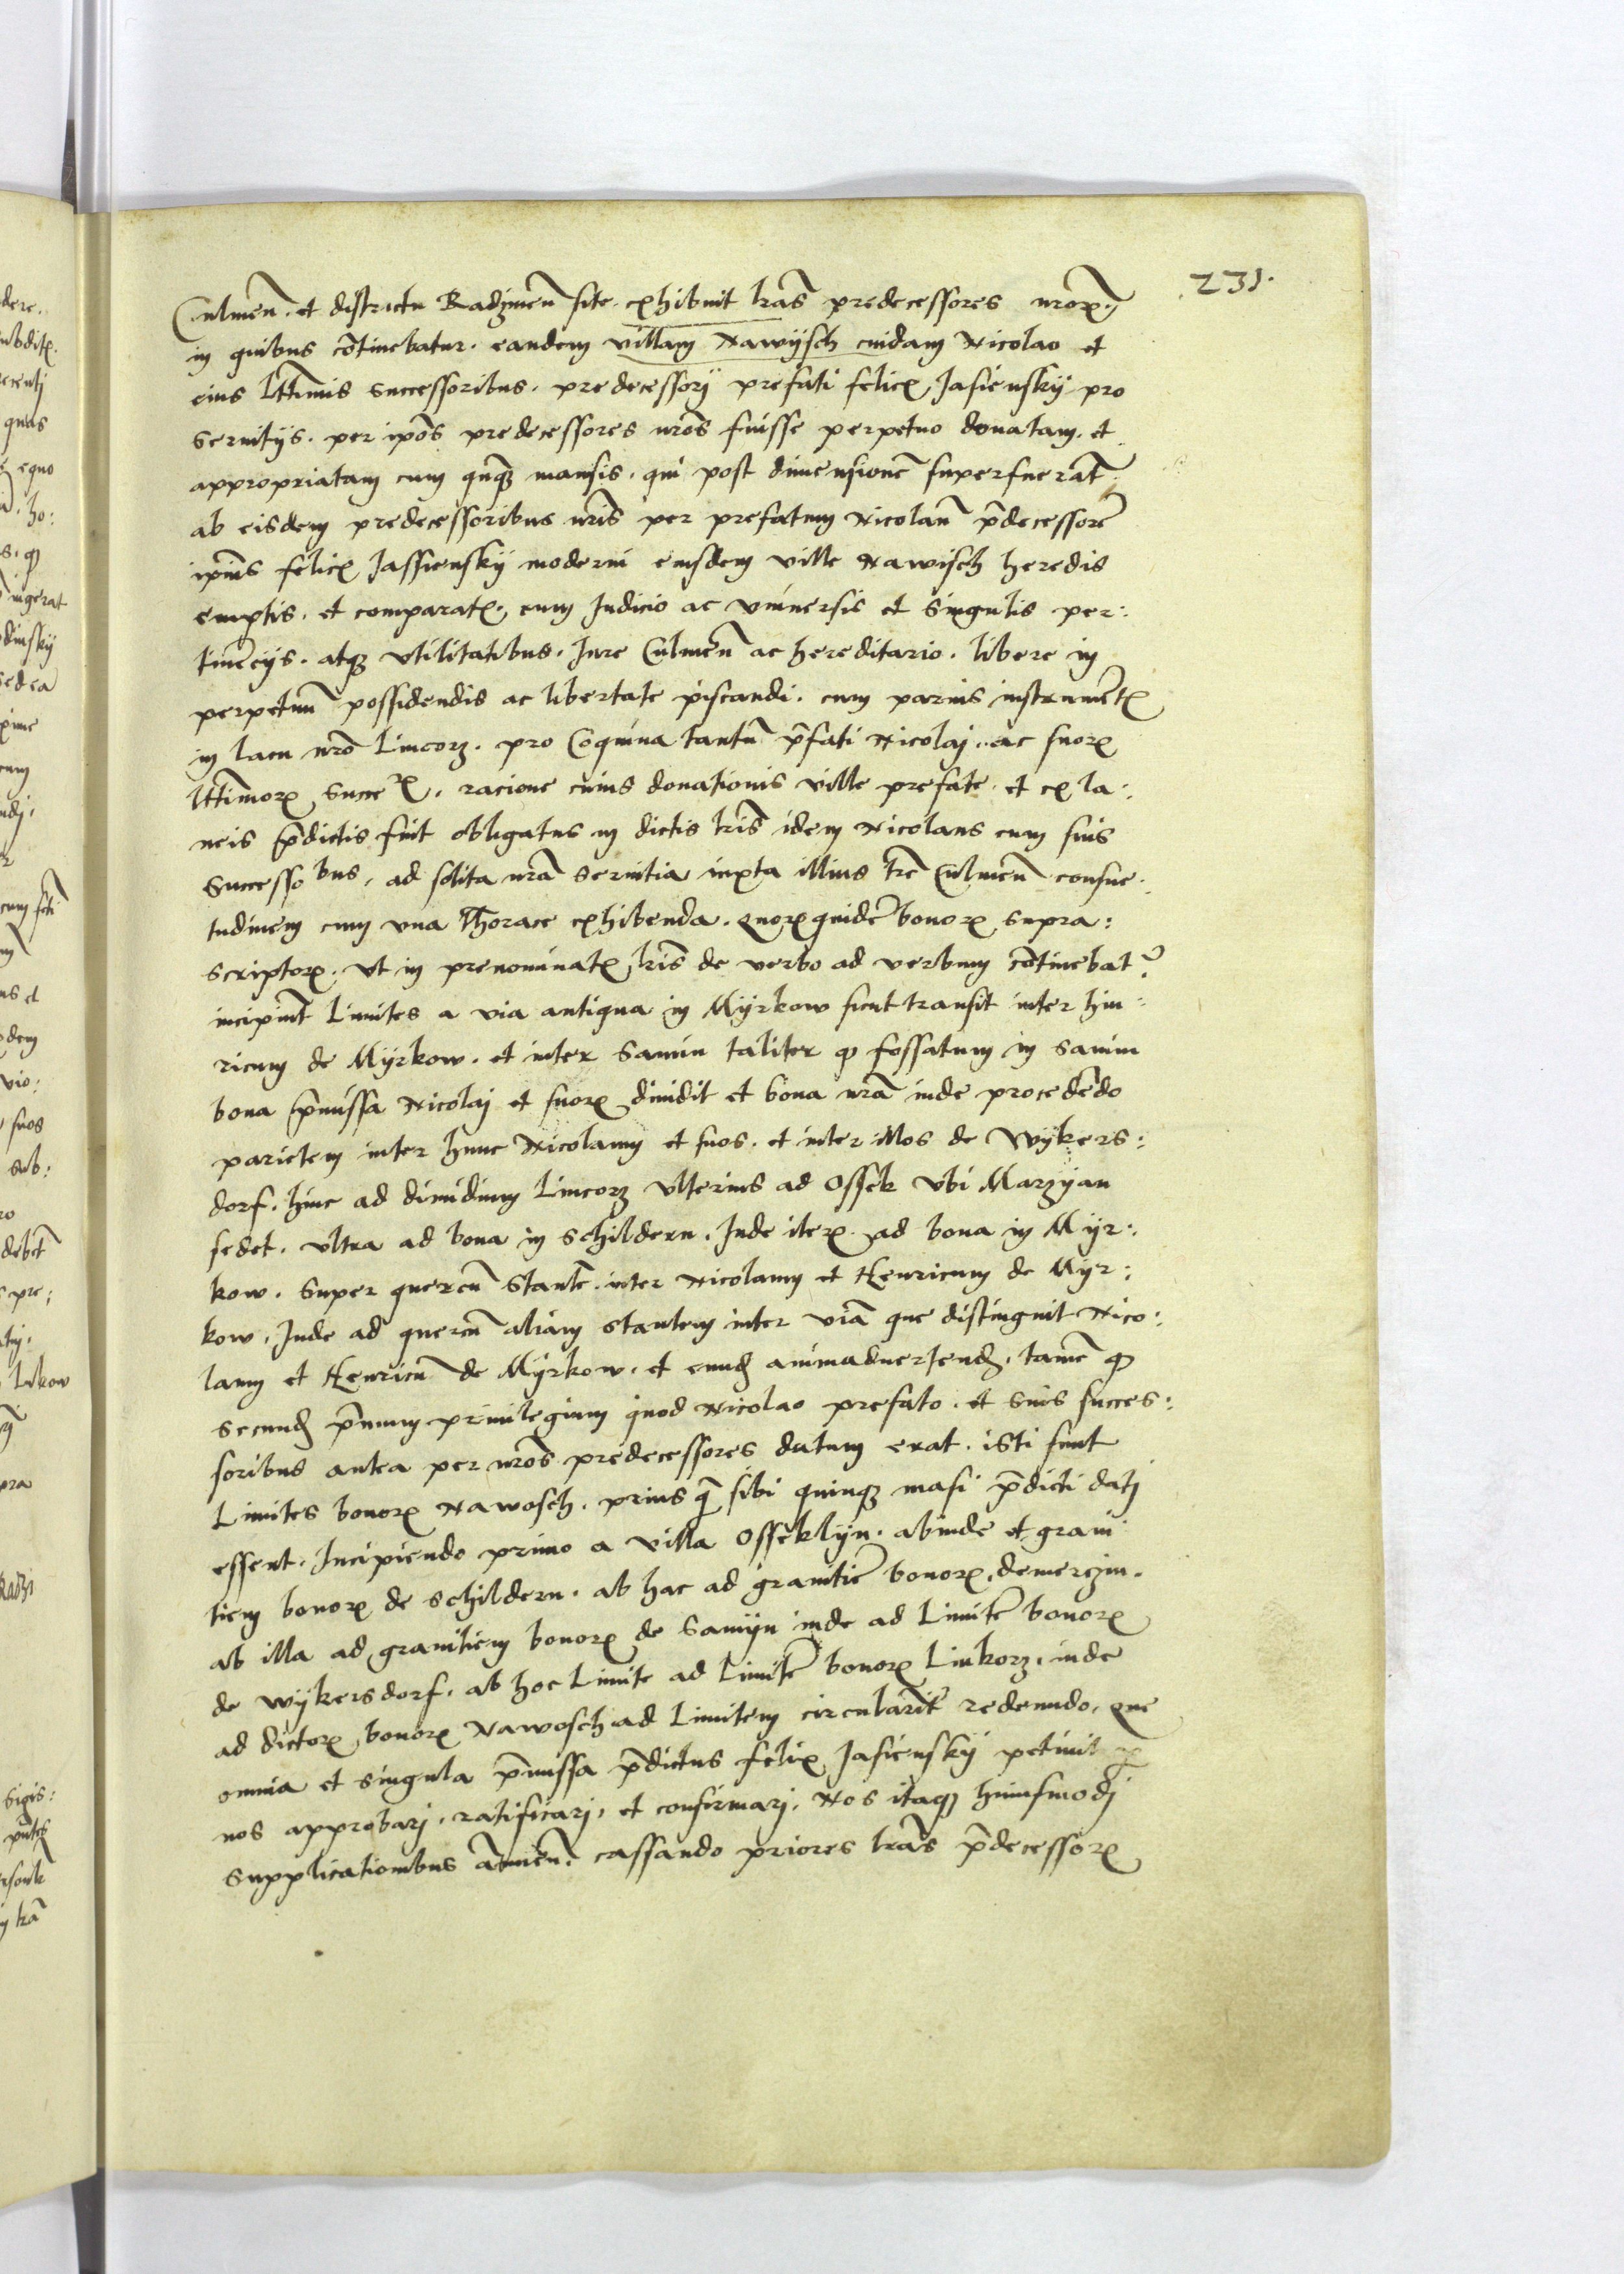 231.
Culmen̄. et districtu Radzinen̄ site. exhibuit lrãs predecessores nrõꝝ.
in quibus cõtinebatur. eandem villam Nawijsch cuidam Nicolao et
eius lttĩmis successoribus. predecessorij prefati felicꝭ Jasiensky pro
seruitijs. per ipõs predecessores nrõs fuisse perpetuo donatam. et
appropriatam cum quĩqꝫ mansis. qui post dimensionẽ superfuerãt
ab eisdem predecessoribus nrĩs per prefatum Nicolaũ p̃decessorẽ
ip̃ius felicꝭ Jassiensky moderni eiusdem ville Nawisch heredis
emptis. et comparatꝭ. cum Judicio ac vniuersis et singulis per:
tinẽcijs. atqꝫ vtilitatibus. Jure Culmen̄ ac hereditario. libere in
perpetuũ possidendis ac libertate piscandi. cum paruis instrumẽtꝭ
in lacu nrõ Lincorz. pro Coquina tantũ p̃fati Nicolaj. ac suoꝝ
lttĩmoꝝ succeꝝ. racione cuius donationis ville prefate. et ex la:
neis p̃dictis fuit obligatus in dictis lrĩs idem Nicolaus cum suis
Successobus. ad solita nrã seruitia iuxta illius trẽ Culmen̄ consue:
tudinem cum vna Thorace exhibenda. quoꝝ quidẽ bonoꝝ supra:
scriptoꝝ. vt in prenominatꝭ lrĩs de verbo ad verbum cõtinebat᷑
incipiũt Limites a via antiqua in Myrkow sicut transit inter hin:
ricum de Myrkow. et inter Samin taliter ꝙ fossatum in Samin
bona p̃missa Nicolaj et suoꝝ diuidit et bona nrã inde procedẽdo
parietem inter hunc Nicolaum et suos. et inter illos de Wykers:
dorf. hinc ad dimidium Lincorz vlterius ad Ossek vbi Marzyan
sedet. vltra ad bona in Schildern. Inde iteꝝ ad bona in Myr:
kow. super quercũ stantẽ. inter Nicolaum et Henricum de Myr:
kow. Inde ad quercũ aliam stantem inter viã que distinguit Nico:
laum et Henricũ de Myrkow. et eundꝫ animaduertendꝫ. tamẽ ꝙ
secundꝫ p̃mum priuilegium quod Nicolao prefato. et suis succes:
soribus antea per nrõs predecessores datum erat. isti sunt
Limites bonoꝝ Nawosch. prius q̃ sibi quinqꝫ masi p̃dicti datj
essent. Incipiendo primo a villa Osseklyn. abinde et grani
tiem bonoꝝ de Schildern. ab hac ad granitiẽ bonoꝝ demerzin.
ab illa ad granitiem bonoꝝ de Samyn inde ad Limitẽ bonoꝝ
de wykersdorf. ab hoc Limite ad Limitẽ bonoꝝ Linkorz. inde
ad dictoꝝ bonoꝝ Nawosch ad Limitem circularit᷑ redeundo. que
omnia et singula p̃missa p̃dictus felix Jasiensky petiuit ꝑ
nos approbarj. ratificarj. et confirmarj. Nos itaqꝫ huiusmodj
supplicationibus ãnuen̄. cassando priores lrãs p̃decessoꝝ